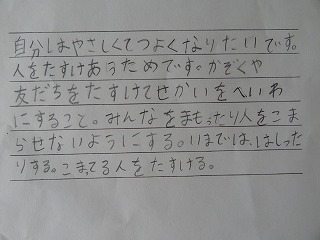 自分はやさしくてつよくなりたいです。
人をたすけあうためです。かぞくや
友だちをたすけてせかいをへいわ
にすること。みんなをまもったり人をこま
らせないようにする。いまでは、はしった
りする。こまってる人をたすける。